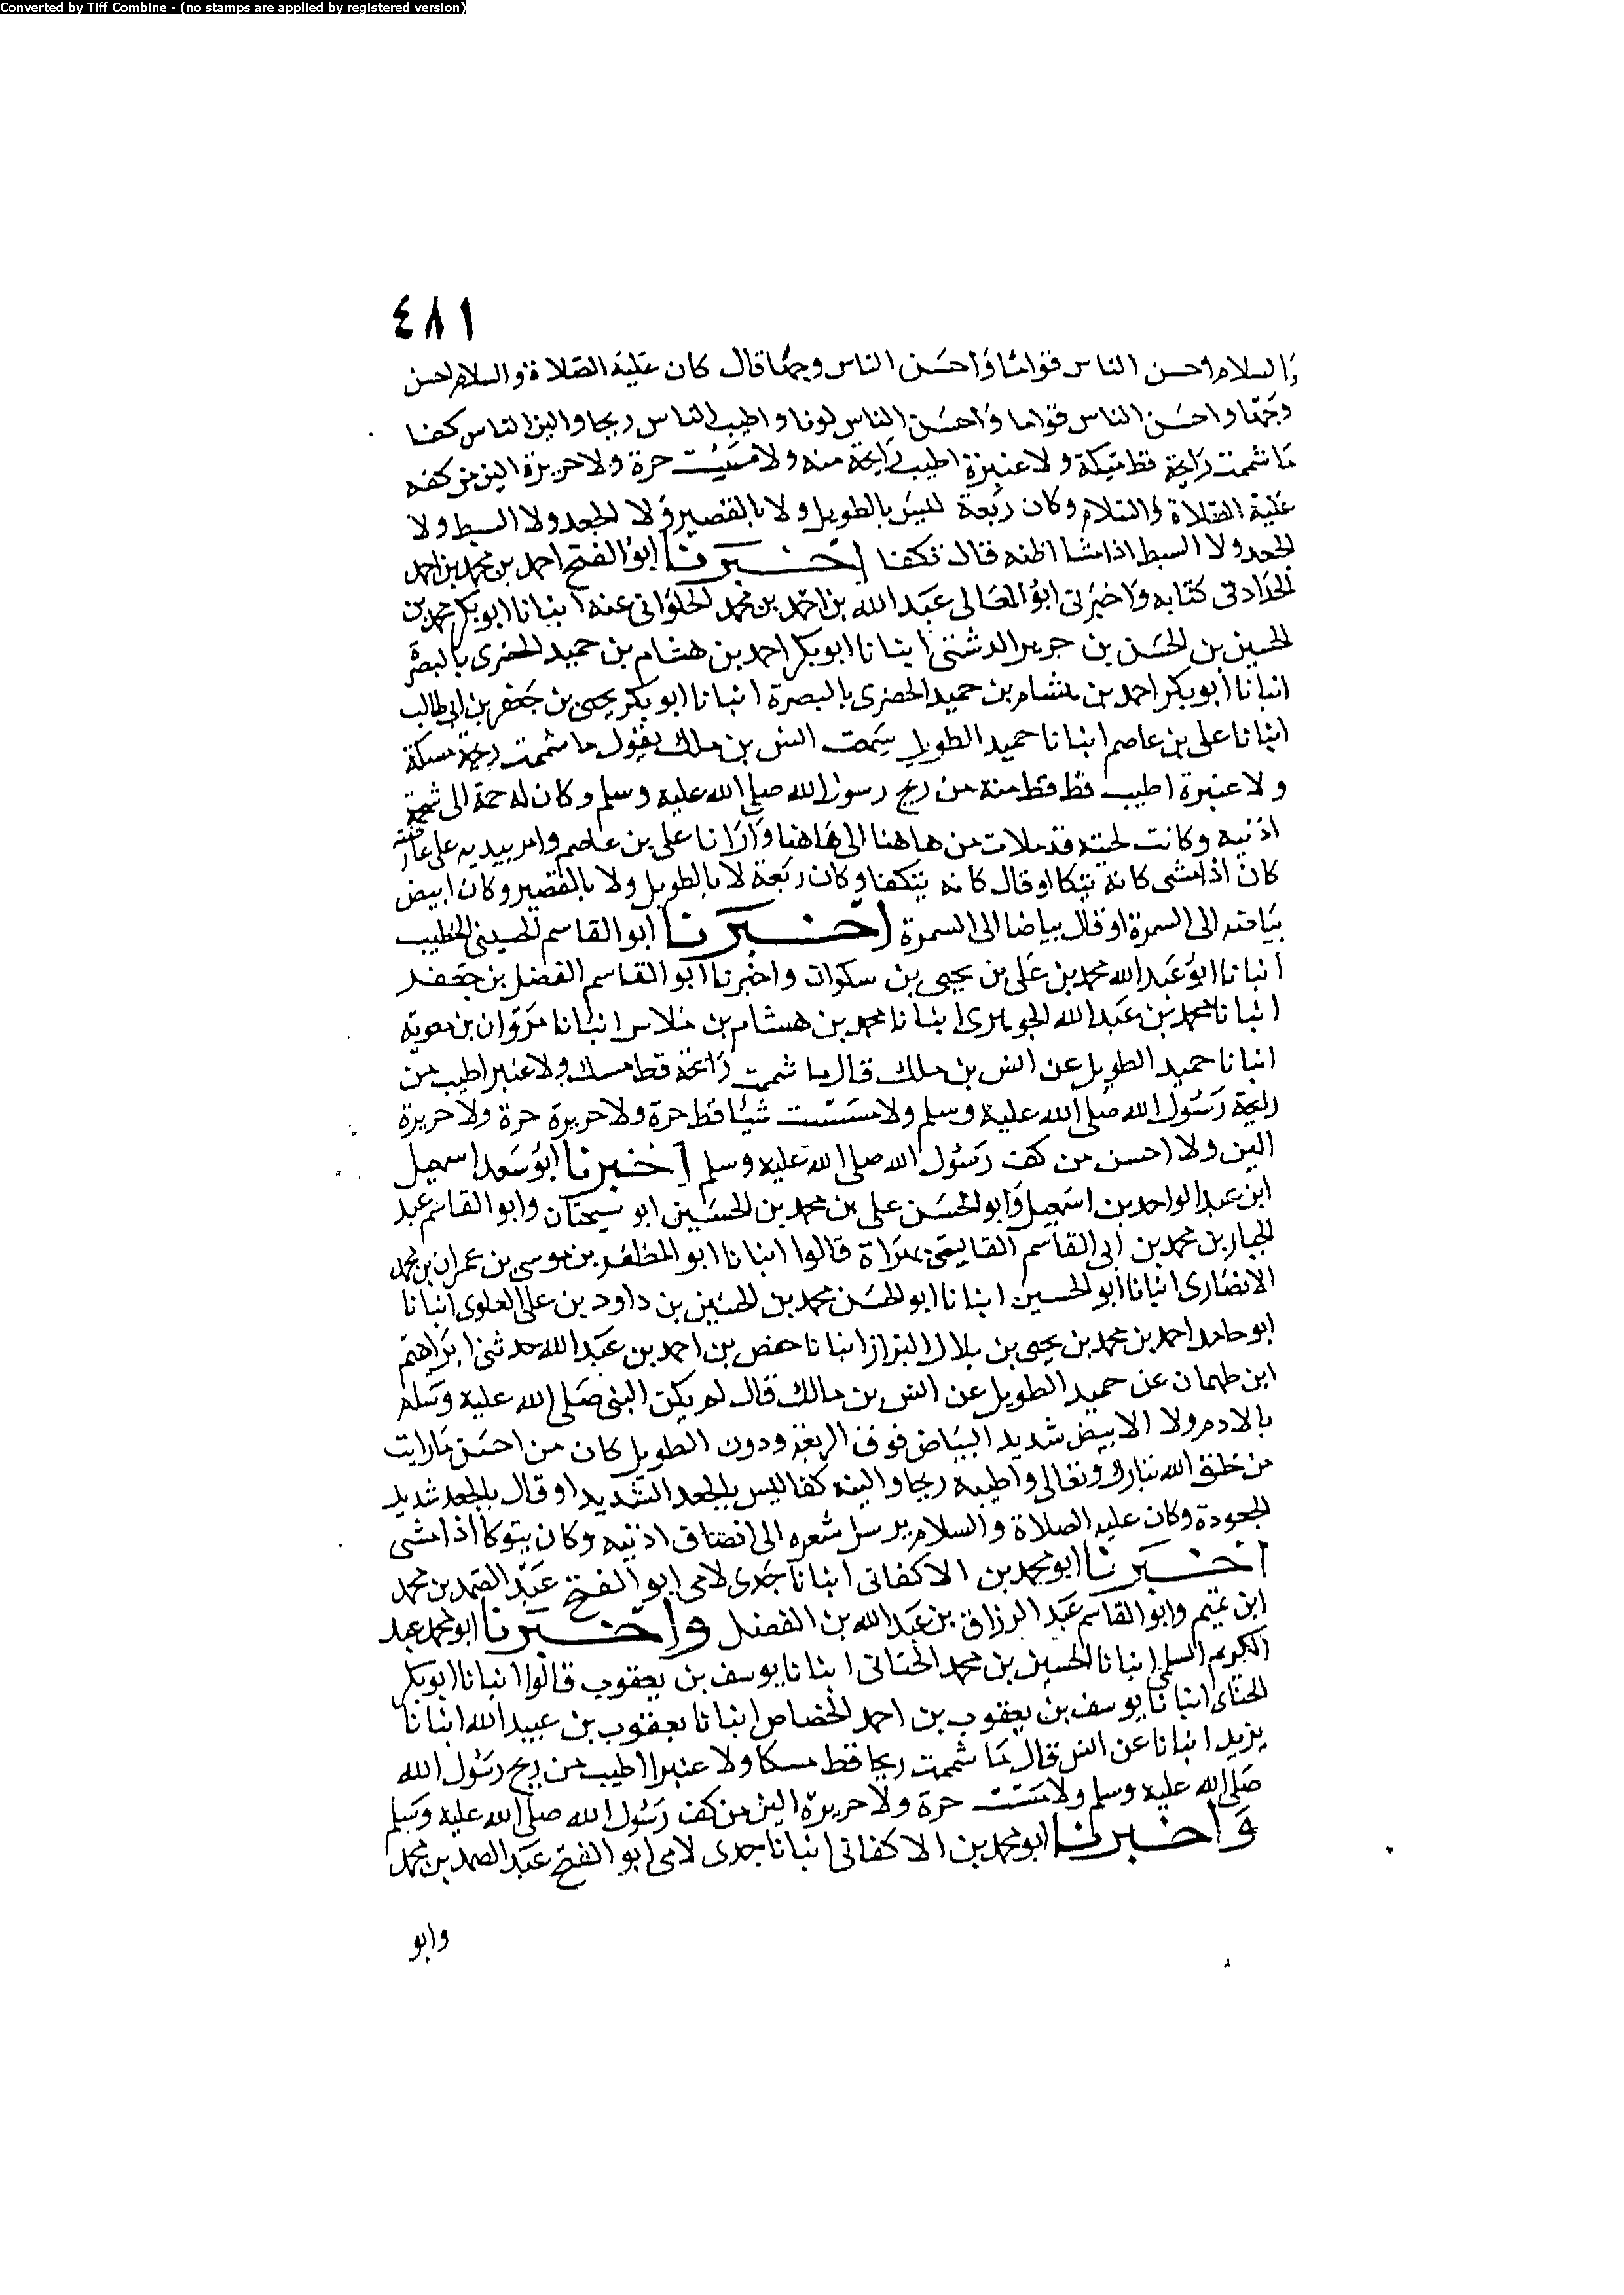 Converted by Tiff Combine - (no stamps are applied by registered version)
٤٨١
والسلام احسن الناس قواما واحسن الناس وجها قال كان عليه الصلاة والسلام احسن
وجها واحسن الناس قواما واحسن الناس لونا واطيب الناس ريحا والين الناس كفا
ما شممت رايحة قط مسكة ولا عنبرة اطيب رايحة منه ولا مسيت حرة ولا حريرة الين من كفه
عليه الصلاة والسلام وكان ربعة ليس بالطويل ولا بالقصير ولا الجعد ولا السبط ولا
الجعد ولا السبط اذا مشا اظنه قال تكفا اخبرنا ابو الفتح احمد بن محمد بن احمد
الحداد في كتابه واخبرني ابو المعالي عبد الله بن احمد بن محمد الحلواني عنه انبانا ابو بكر محمد بن
الحسين بن الحسن بن جرير الدشتي انبانا ابو بكر احمد بن هشام بن حميد الحضري بالبصرة
انبانا ابو بكر احمد بن هشام بن حميد الحضري بالبصرة انبانا ابو بكر يحيى بن جعفر بن ابي طالب
انبانا علي بن عاصم انبانا حميد الطويل سمعت انس بن ملك يقول ما شممت ريحة مسكة
ولا عنبرة اطيب قط قط منة من ريح رسول الله صلى الله عليه وسلم وكان له جمة الى شحمة
اذنيه وكانت لحيته قد ملات من هاهنا الى هاهنا وارانا علي بن عاصم وامر بيديه على عارضيه
كان اذا مشى كانه يتكا او قال كانه يتكفا وكان ربعة لا بالطويل ولا بالقصير وكان ابيض
بياضه الى السمرة او قال بياضا الى السمرة اخبرنا ابو القاسم الحسيني الخطيب
انبانا ابو عبد الله محمد بن علي بن يحيى بن سكوان واخبرنا ابو القاسم الفضل بن جعفر
انبانا محمد بن عبد الله الجوهري انبانا محمد بن هشام بن ملاس انبانا مروان بن معوية
انبانا حميد الطويل عن انس بن ملك قال ما شممت رائحة قط مسك ولا عنبر اطيب من
رايحة رسول الله صلى الله عليه وسلم ولا مسست شيئا قط حرة ولا حريرة حرة ولا حريرة
الين ولا احسن من كف رسول الله صلى الله عليه وسلم اخبرنا ابو سعد اسمعيل
ابن عبد الواحد بن اسمعيل وابو الحسن علي بن محمد بن الحسين ابو وابو القاسم عبد
الجبار بن محمد بن ابي القاسم بهراة قالوا انبانا ابو المظفر بن موسى بن عمران بن محمد
الانصاري انبانا ابو الحسين انبانا ابو الحسن محمد بن الحسين بن داود بن علي العلوي انبانا
ابو حامد احمد بن محمد بن يحيى بن بلال البزاز انبانا حفص بن احمد بن عبد الله حدثني ابراهيم
ابن طهمان عن حميد الطويل عن انس بن مالك قال لم يكن النبي صلى الله عليه وسلم
بالادم ولا الابيض شديد البياض فوق الربعة ودون الطويل كان من احسن ما رايت
من خلق الله تبارك وتعالى واطيبه ريحا والينه كفا ليس بالجعد الشديد او قال بالجعد شديد
الجعودة وكان عليه الصلاة والسلام يرسل شعره الى انصاف اذنيه وكان يتوكا اذا مشى
اخبرنا ابو محمد بن الاكفاني انبانا جدي لامي ابو الفتح عبد الصمد بن محمد
ابن تميم وابو القاسم عبد الرزاق بن عبد الله بن الفضل واخبرنا ابو محمد عبد
الكريم السلمي انبانا الحسين بن محمد الحنائي انبانا يوسف بن يعقوب قالوا انبانا ابو بكر
الحنائي انبانا يوسف بن يعقوب بن احمد الخصاص انبانا يعقوب بن عبيد الله انبانا
يزيد انبانا عن انس قال ما شممت ريحا قط مسكا ولا عنبرا اطيب من ريح رسول الله
صلى الله عليه وسلم ولا مسست حرة ولا حريرة الين من كف رسول الله صلى الله عليه وسلم
واخبرنا ابو محمد بن الاكفاني انبانا جدي لامي ابو الفتح عبد الصمد بن محمد
وابو